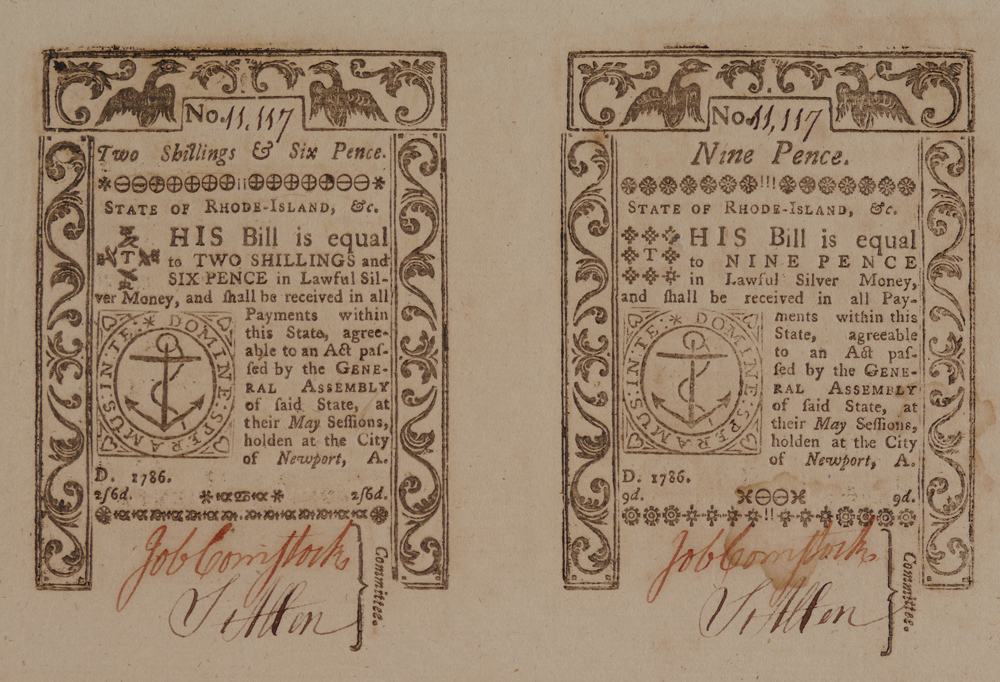 No. 11,117
Two Shillings & Six Pence.
STATE OF RHODE-ISLAND, &c.
T HIS Bill is equal
to TWO SHILLINGS and
SIX PENCE in Lawful Sil-
ver Money, and ſhall be received in all
Payments within
this State, agree-
able to an Act paſ-
ſed by the GENE-
RAL ASSEMBLY
of ſaid State, at
their May Seſſions,
holden at the City
of Newport, A.
D. 1786.
IN TE : * DOMINE : SPERAMUS :
2ſ6d. 2ſ6d.
Job Comſtock
Committee.
No. 11,117
Nine Pence.
STATE OF RHODE-ISLAND, &c.
T HIS Bill is equal
to NINE PENCE
in Lawful Silver Money,
and ſhall be received in all Pay-
ments within this
State, agreeable
to an Act paſ-
ſed by the GENE-
RAL ASSEMBLY
of ſaid State, at
their May Seſſions,
holden at the City
of Newport, A.
D. 1786.
IN TE : * DOMINE : SPERAMUS :
9d. 9d.
Job Comſtock
Committee.